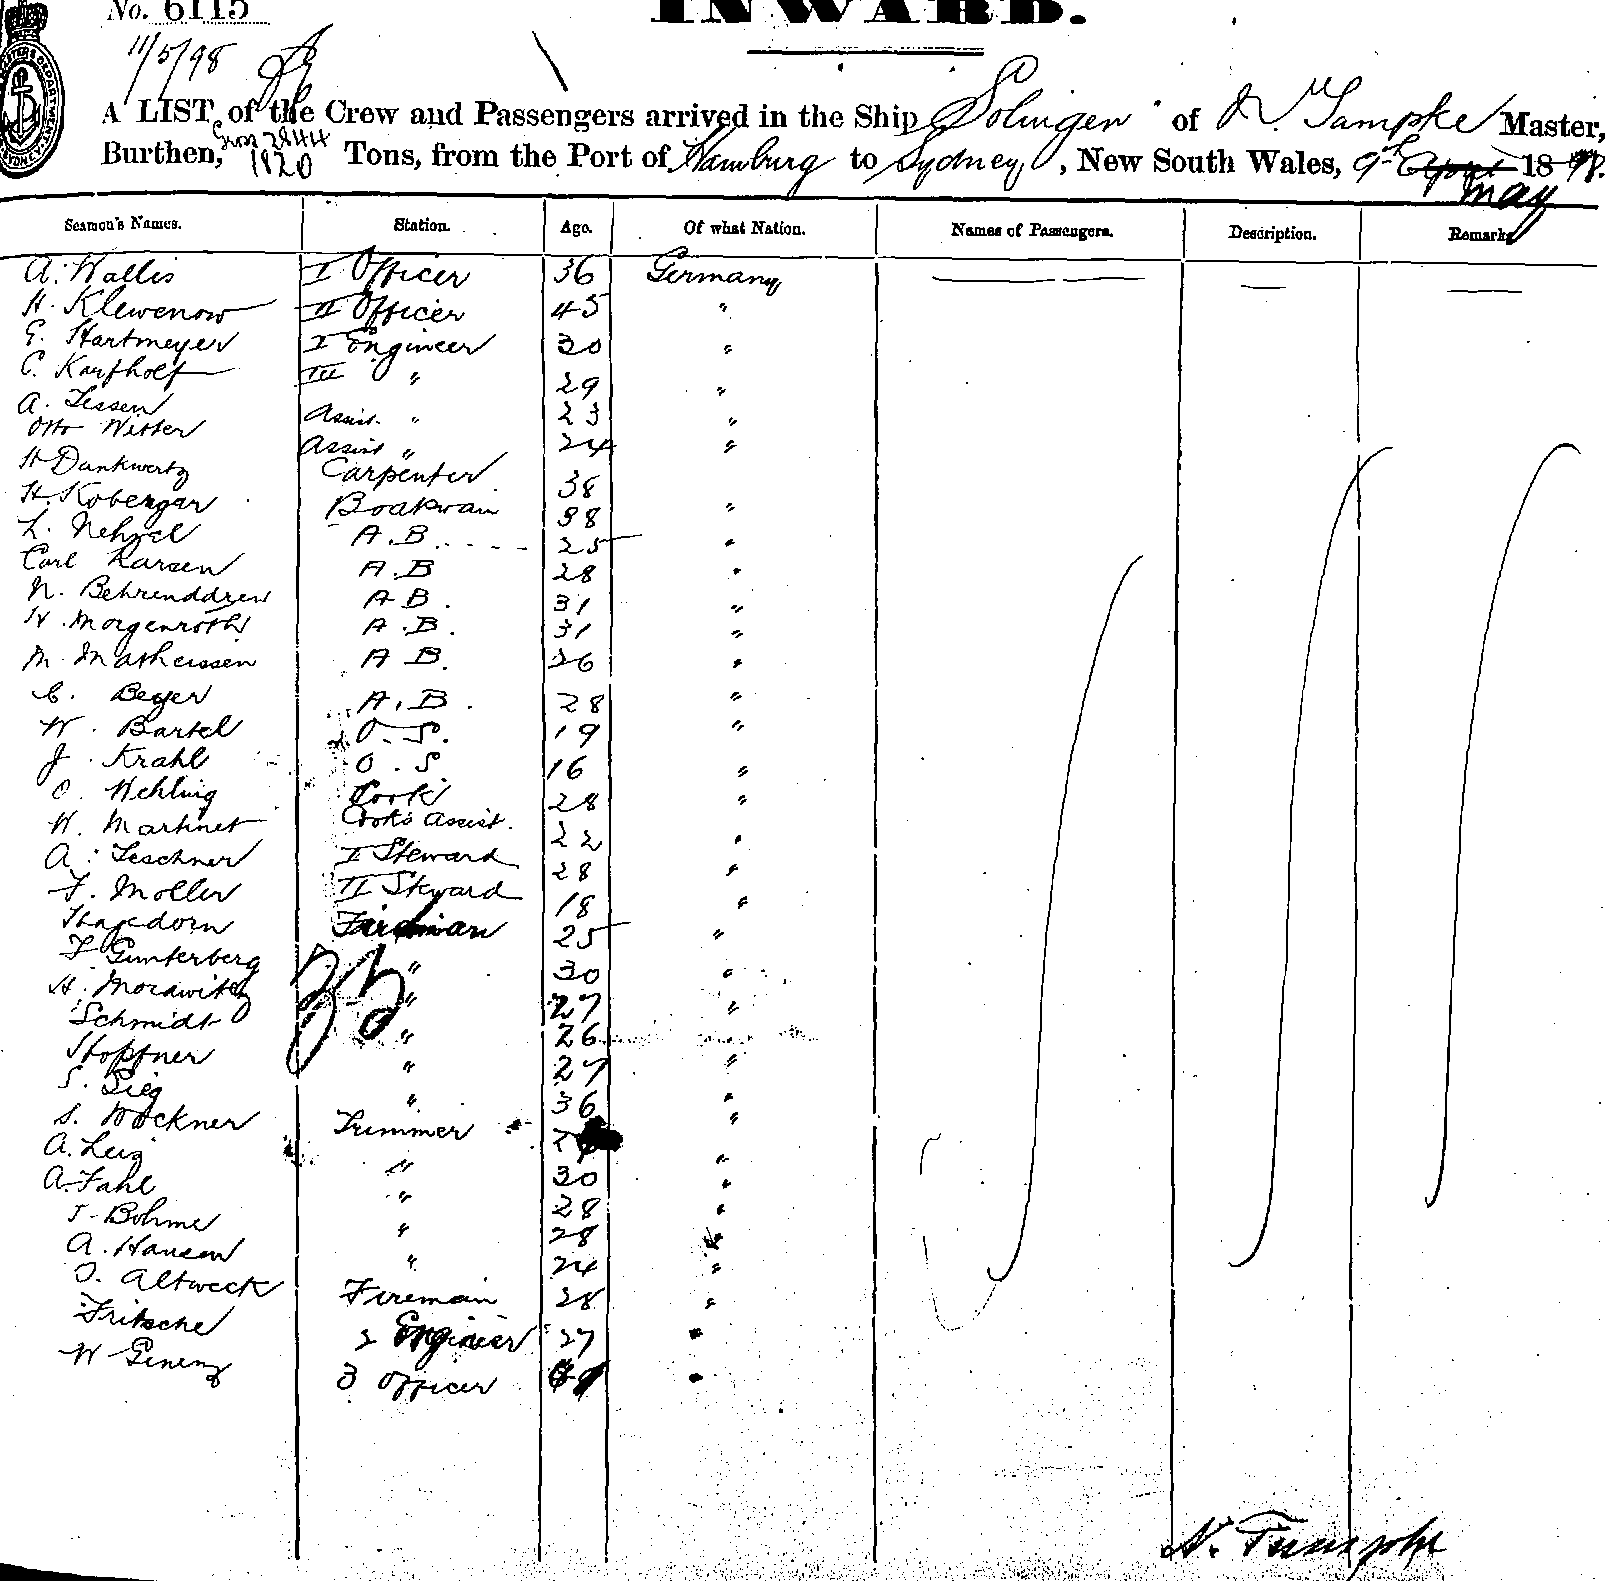 No. 6115
INWARD.
11/5/98
A LIST of the Crew and Passengers arrived in the Ship Solingen of N. Tampke Master,
Burthen, Gross 2844 1820 Tons, from the Port of Hamburg to Sydney, New South Wales, 9th April May 1898.
Seamen's Names. Station. Age. Of what Nation. Names of Passengers. Description. Remarks
A. Wallis I Officer 36 Germany
H. Klewenow II Officer 45 "
E. Hartmeyer I Engineer 30 "
C. Karfhoff III " 29 "
A. Tessen Assist. " 23 "
Otto Witter Assist " 24 "
H Dankwertz Carpenter 38
H. Kobergar Boatswain 38 "
L. Nehzel A.B. 25 "
Carl Larsen A.B 28 "
N. Behrenddzen A B. 31 "
H. Morgenroth A.B. 31 "
M. Matheissen A B. 26 "
C. Beyer A.B. 28 "
W. Bartel O.S. 19 "
J. Krahl O.S 16 "
O. Wehling Cook 28 "
W. Martinet Cook's Assist. 22 "
A. Teschner I Steward 28 "
F. Moller II Steward 18 "
Hagedorn Fireman 25 "
F Gunterberg " 30 "
H. Morawitz " 27 "
Schmidt " 26
Stopfner " 27 "
S. Sieg " 36 "
S. Wockner Trimmer "
A. Leig " 30 "
A. Fahl " 28 "
T. Bohme " 28 "
A. Hansen " 24 "
O. Altweck Fireman 28 "
Fritsche 2 Engineer 27 "
W Genenz 3 Officer "
N. Tampke